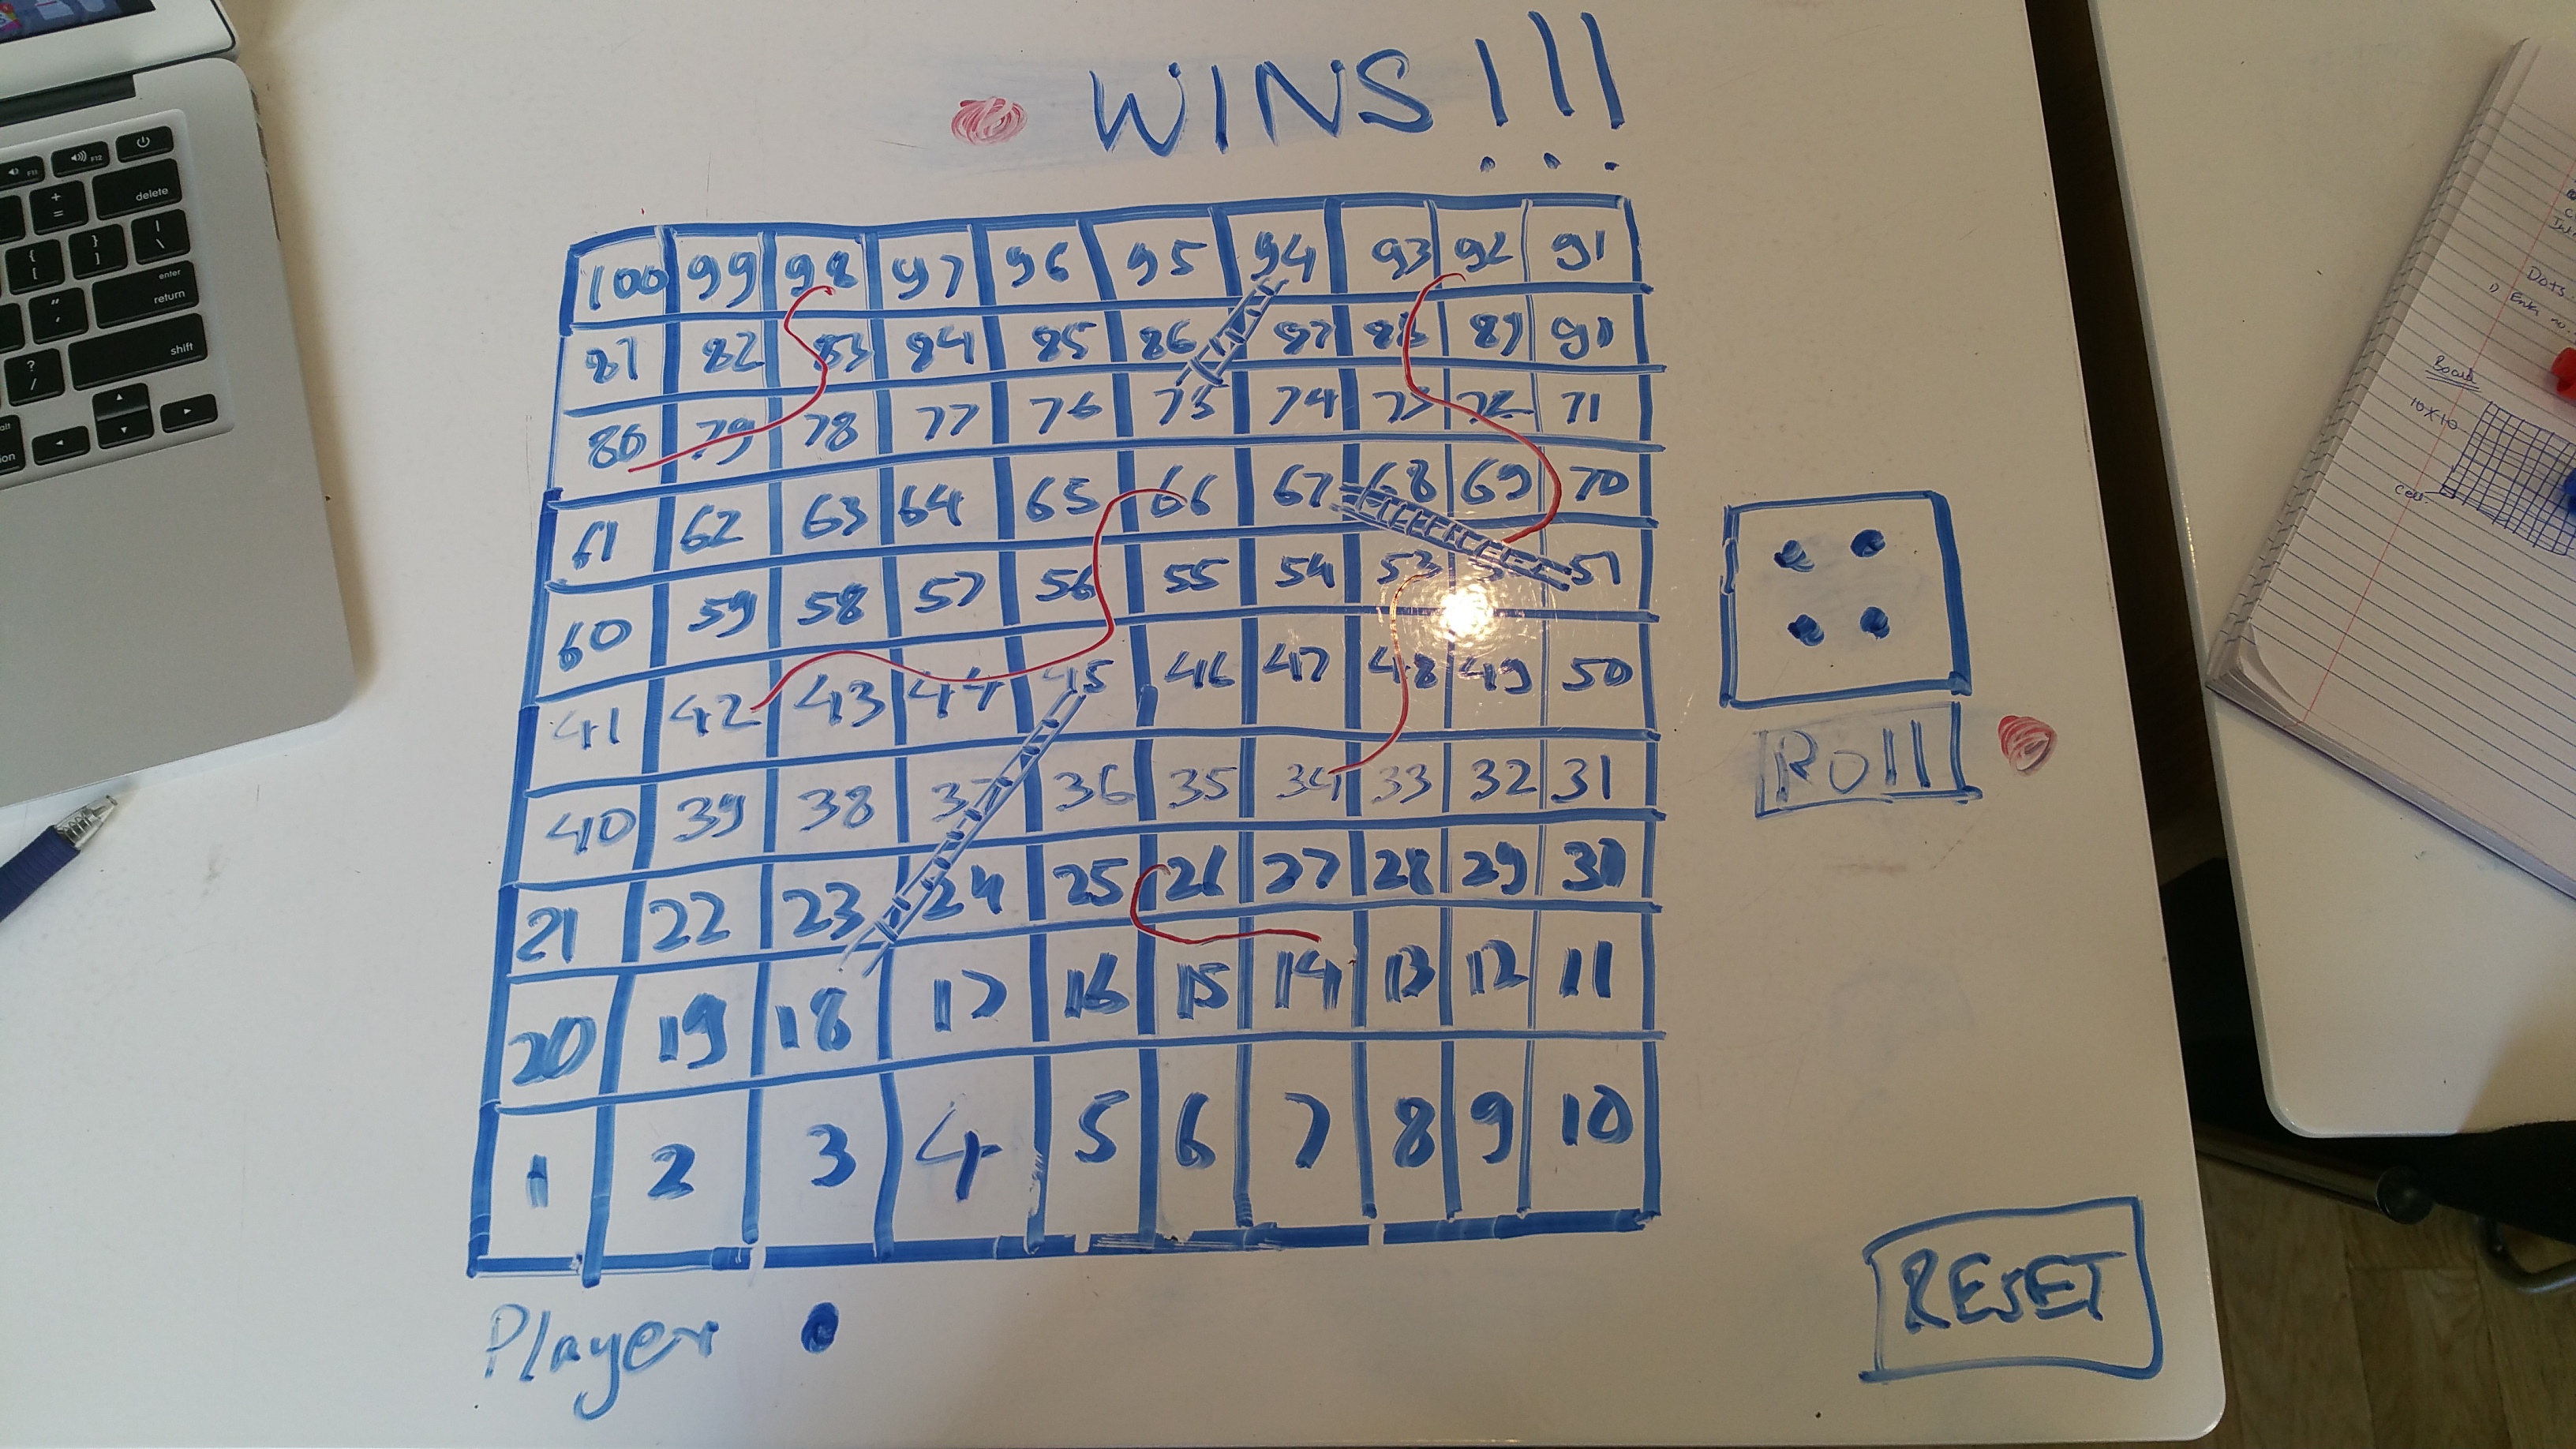 WINS!!!
100 99 98 97 96 95 94 93 92 91
81 82 83 84 85 86 87 88 89 90
80 79 78 77 76 75 74 73 72 71
61 62 63 64 65 66 67 68 69 70
60 59 58 57 56 55 54 53 51
41 42 43 44 45 46 47 48 49 50
40 39 38 37 36 35 34 33 32 31
21 22 23 24 25 26 27 28 29 30
20 19 18 17 16 15 14 13 12 11
1 2 3 4 5 6 7 8 9 10
Roll
Player
RESET
F11 F12
delete
enter
return
shift
Board
10x10
cell